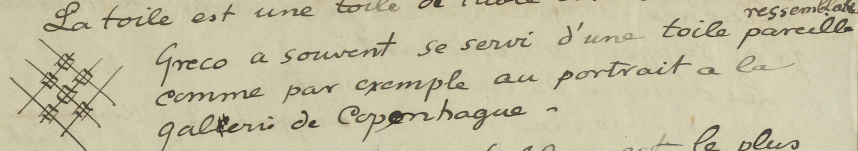 La toile est une toile de
ressemblante
Greco a souvent se servi d'une toile pareille
comme par exemple au portrait a la
gallerie de Copenhague -
le plus